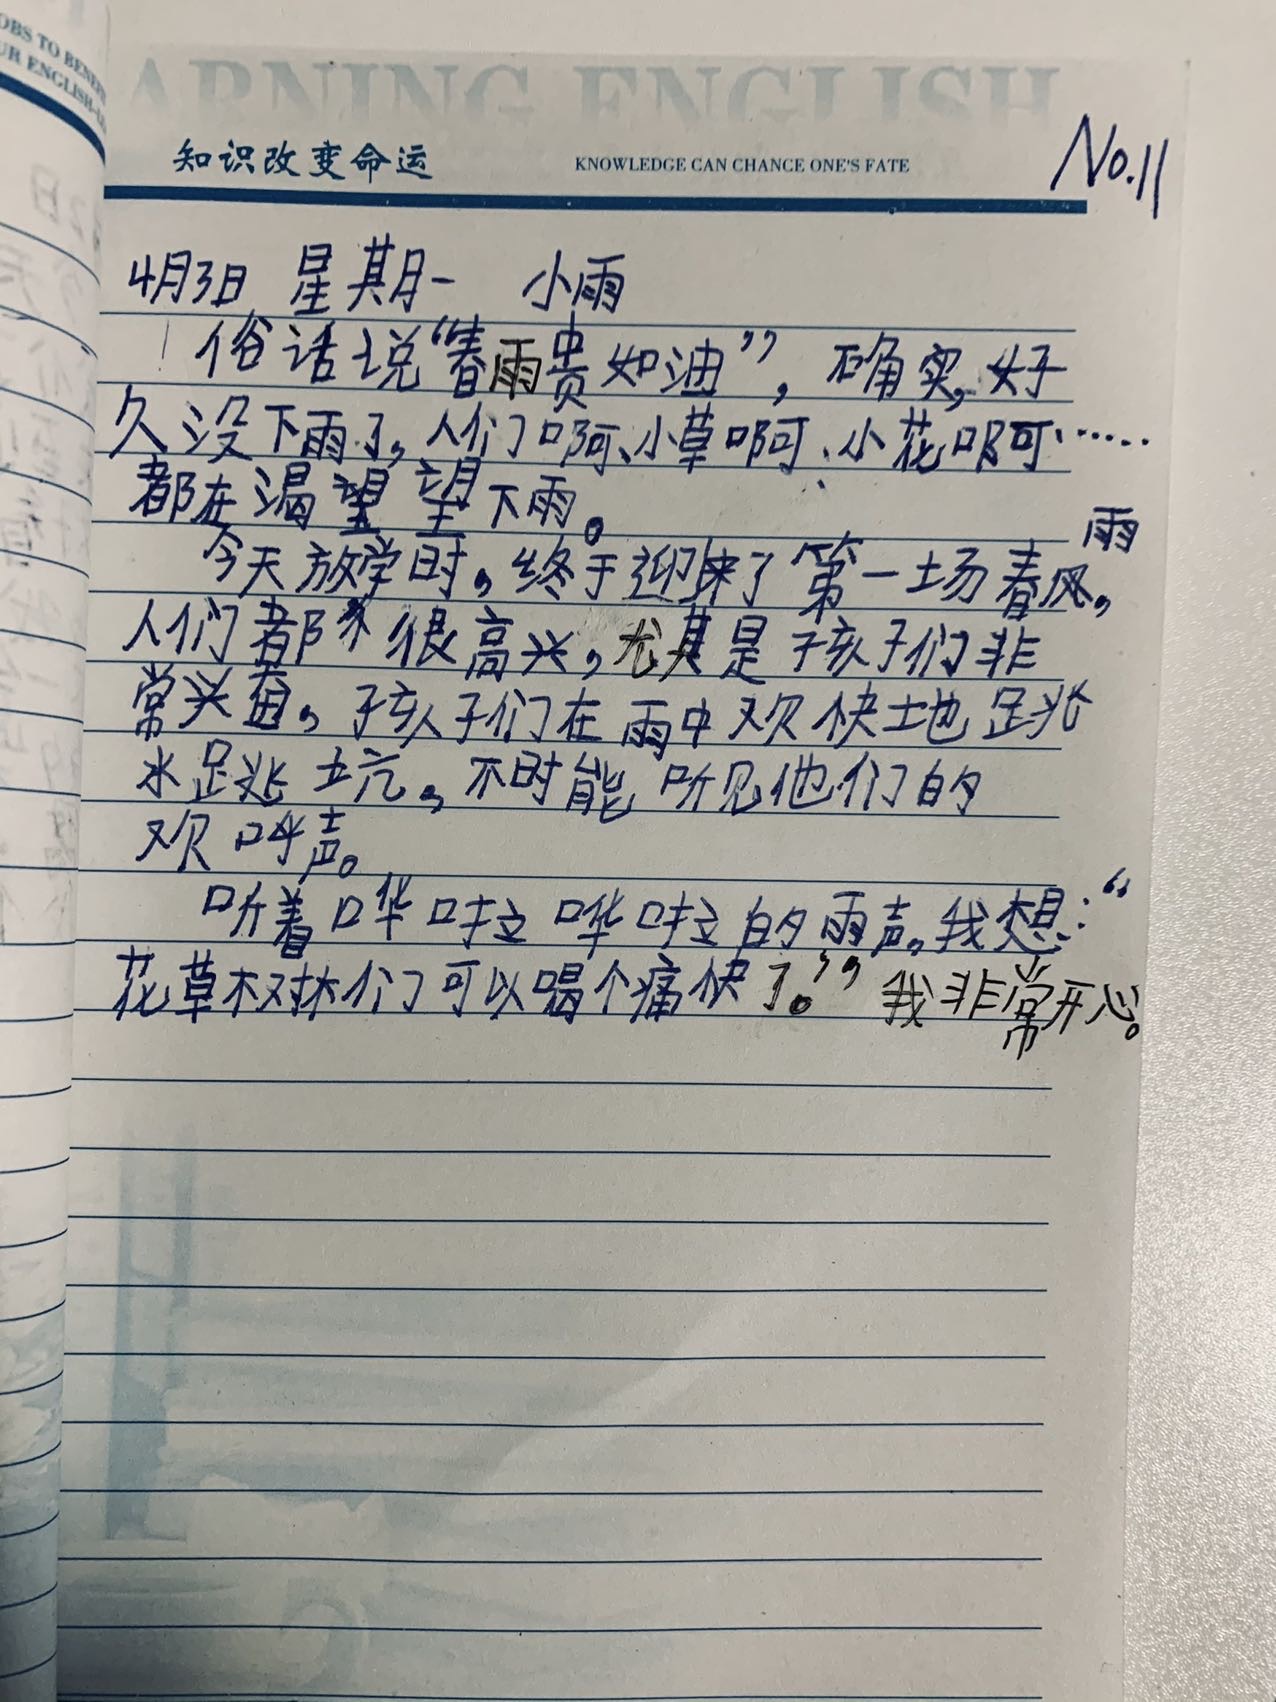 OBS TO BENEF
UR ENGLISH-L
ARNING ENGLISH
知识改变命运 KNOWLEDGE CAN CHANCE ONE'S FATE
No.11
4月3日 星期一 小雨
俗话说“春雨贵如油”,确实,好
久没下雨了,人们啊、小草啊、小花啊、……
都在渴望望下雨。
雨
今天放学时,终于迎来了第一场春风,
人们都很高兴,尤其是孩子们非
常兴奋。孩子们在雨中欢快地跳
水跳坑。不时能听见他们的
欢呼声。
听着哗啦哗啦的雨声。我想:“
花草树林们可以喝个痛快了。”我非常开心。